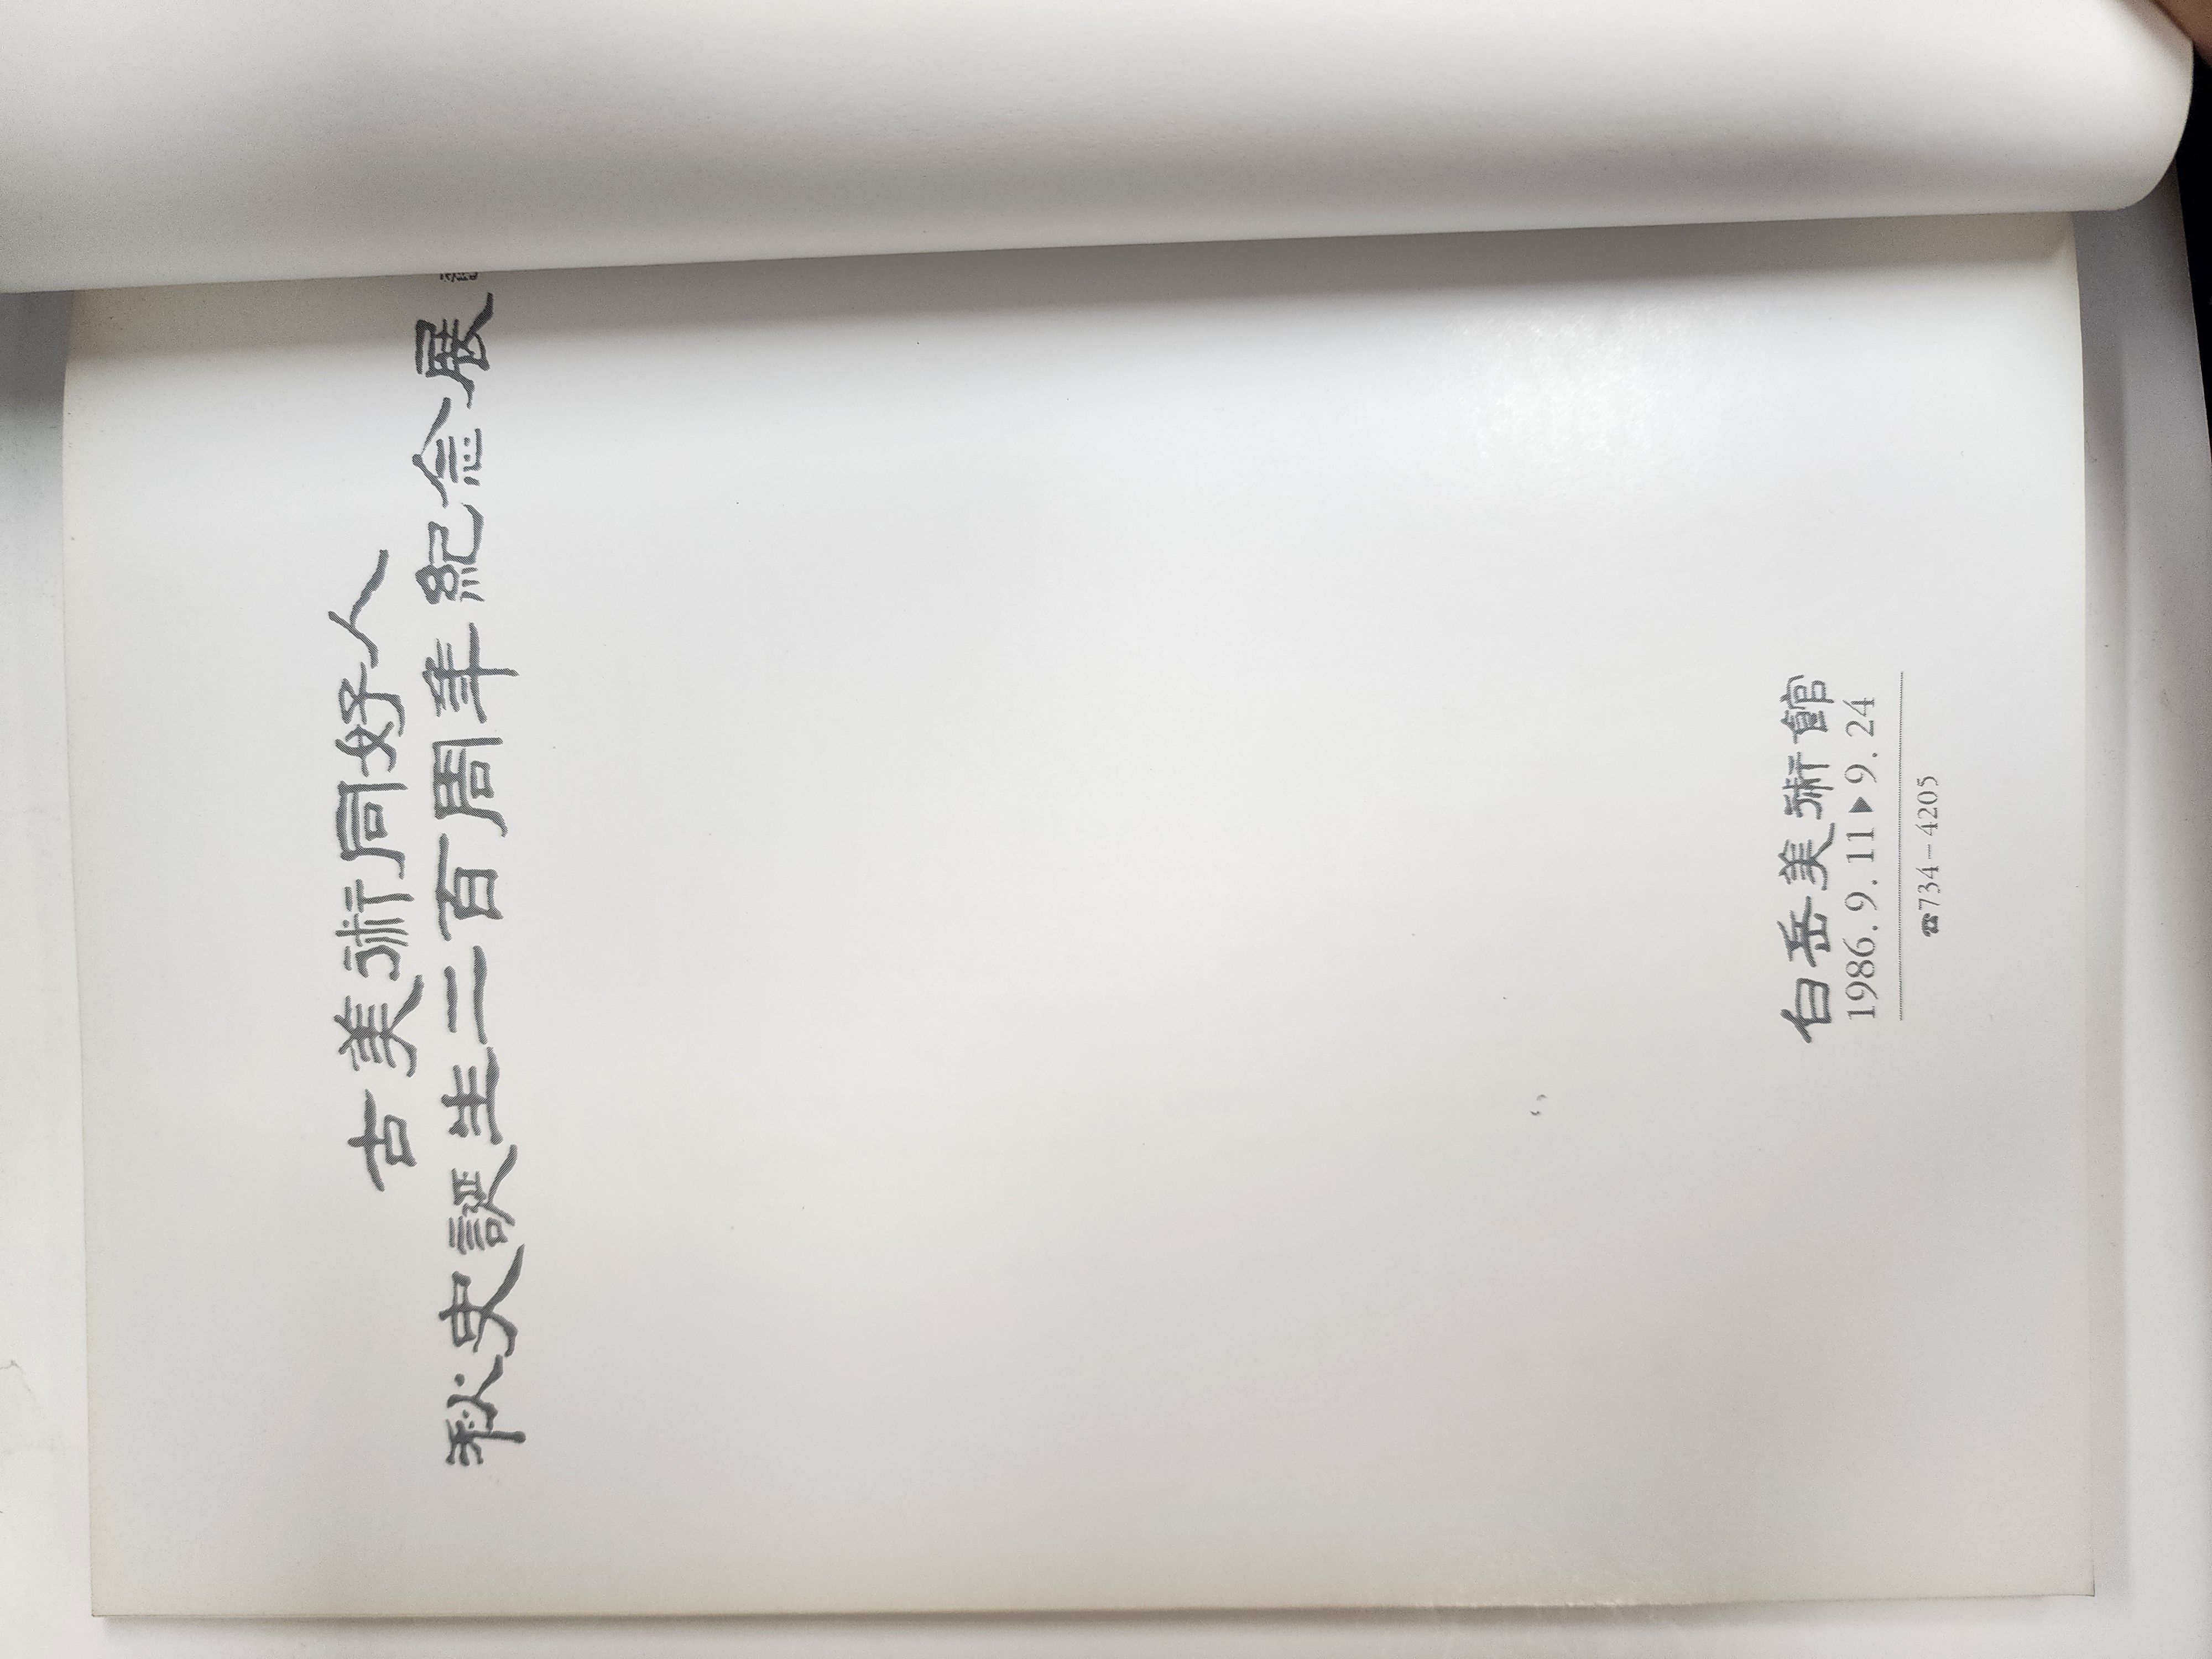 古美術同好人
秋史誕生二百周年紀念展
白岳美術館
1986. 9. 11▶9. 24
☎734－4205